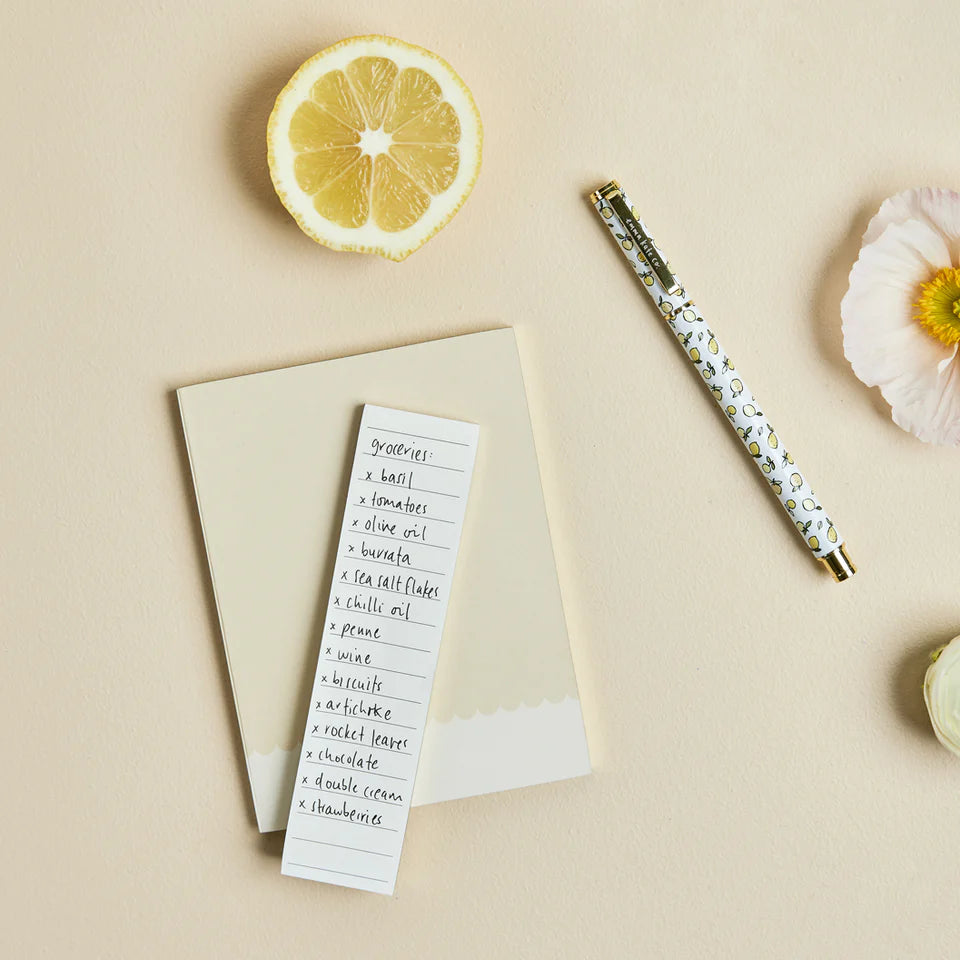 groceries:
x basil
x tomatoes
x olive oil
x burrata
x sea salt flakes
x chilli oil
x penne
x wine
x biscuits
x artichoke
x rocket leaves
x chocolate
x double cream
x strawberries
emma kate co.